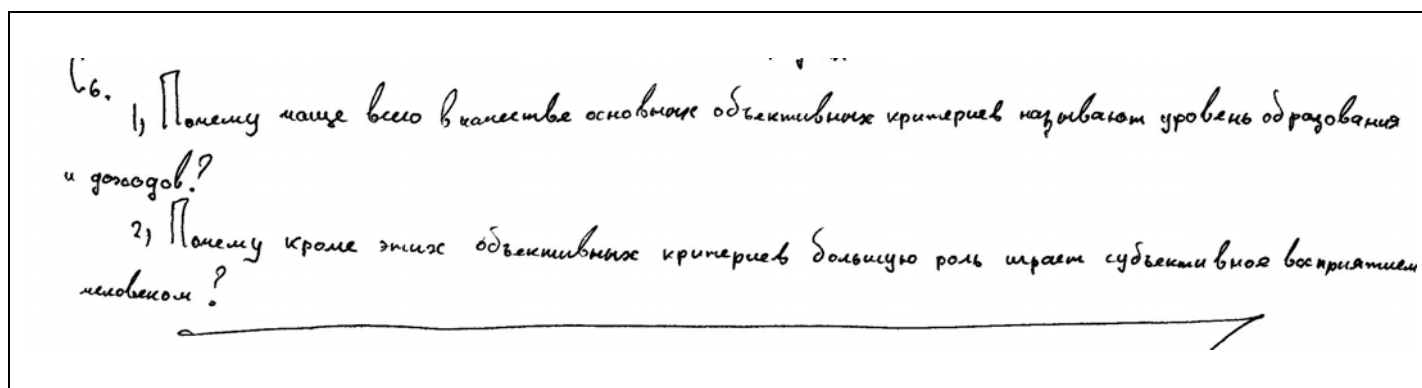 С6.
1) Почему чаще всего в качестве основных объективных критериев называют уровень образования
и доходов?
2) Почему кроме этих объективных критериев большую роль играет субъективное восприятием
человеком?